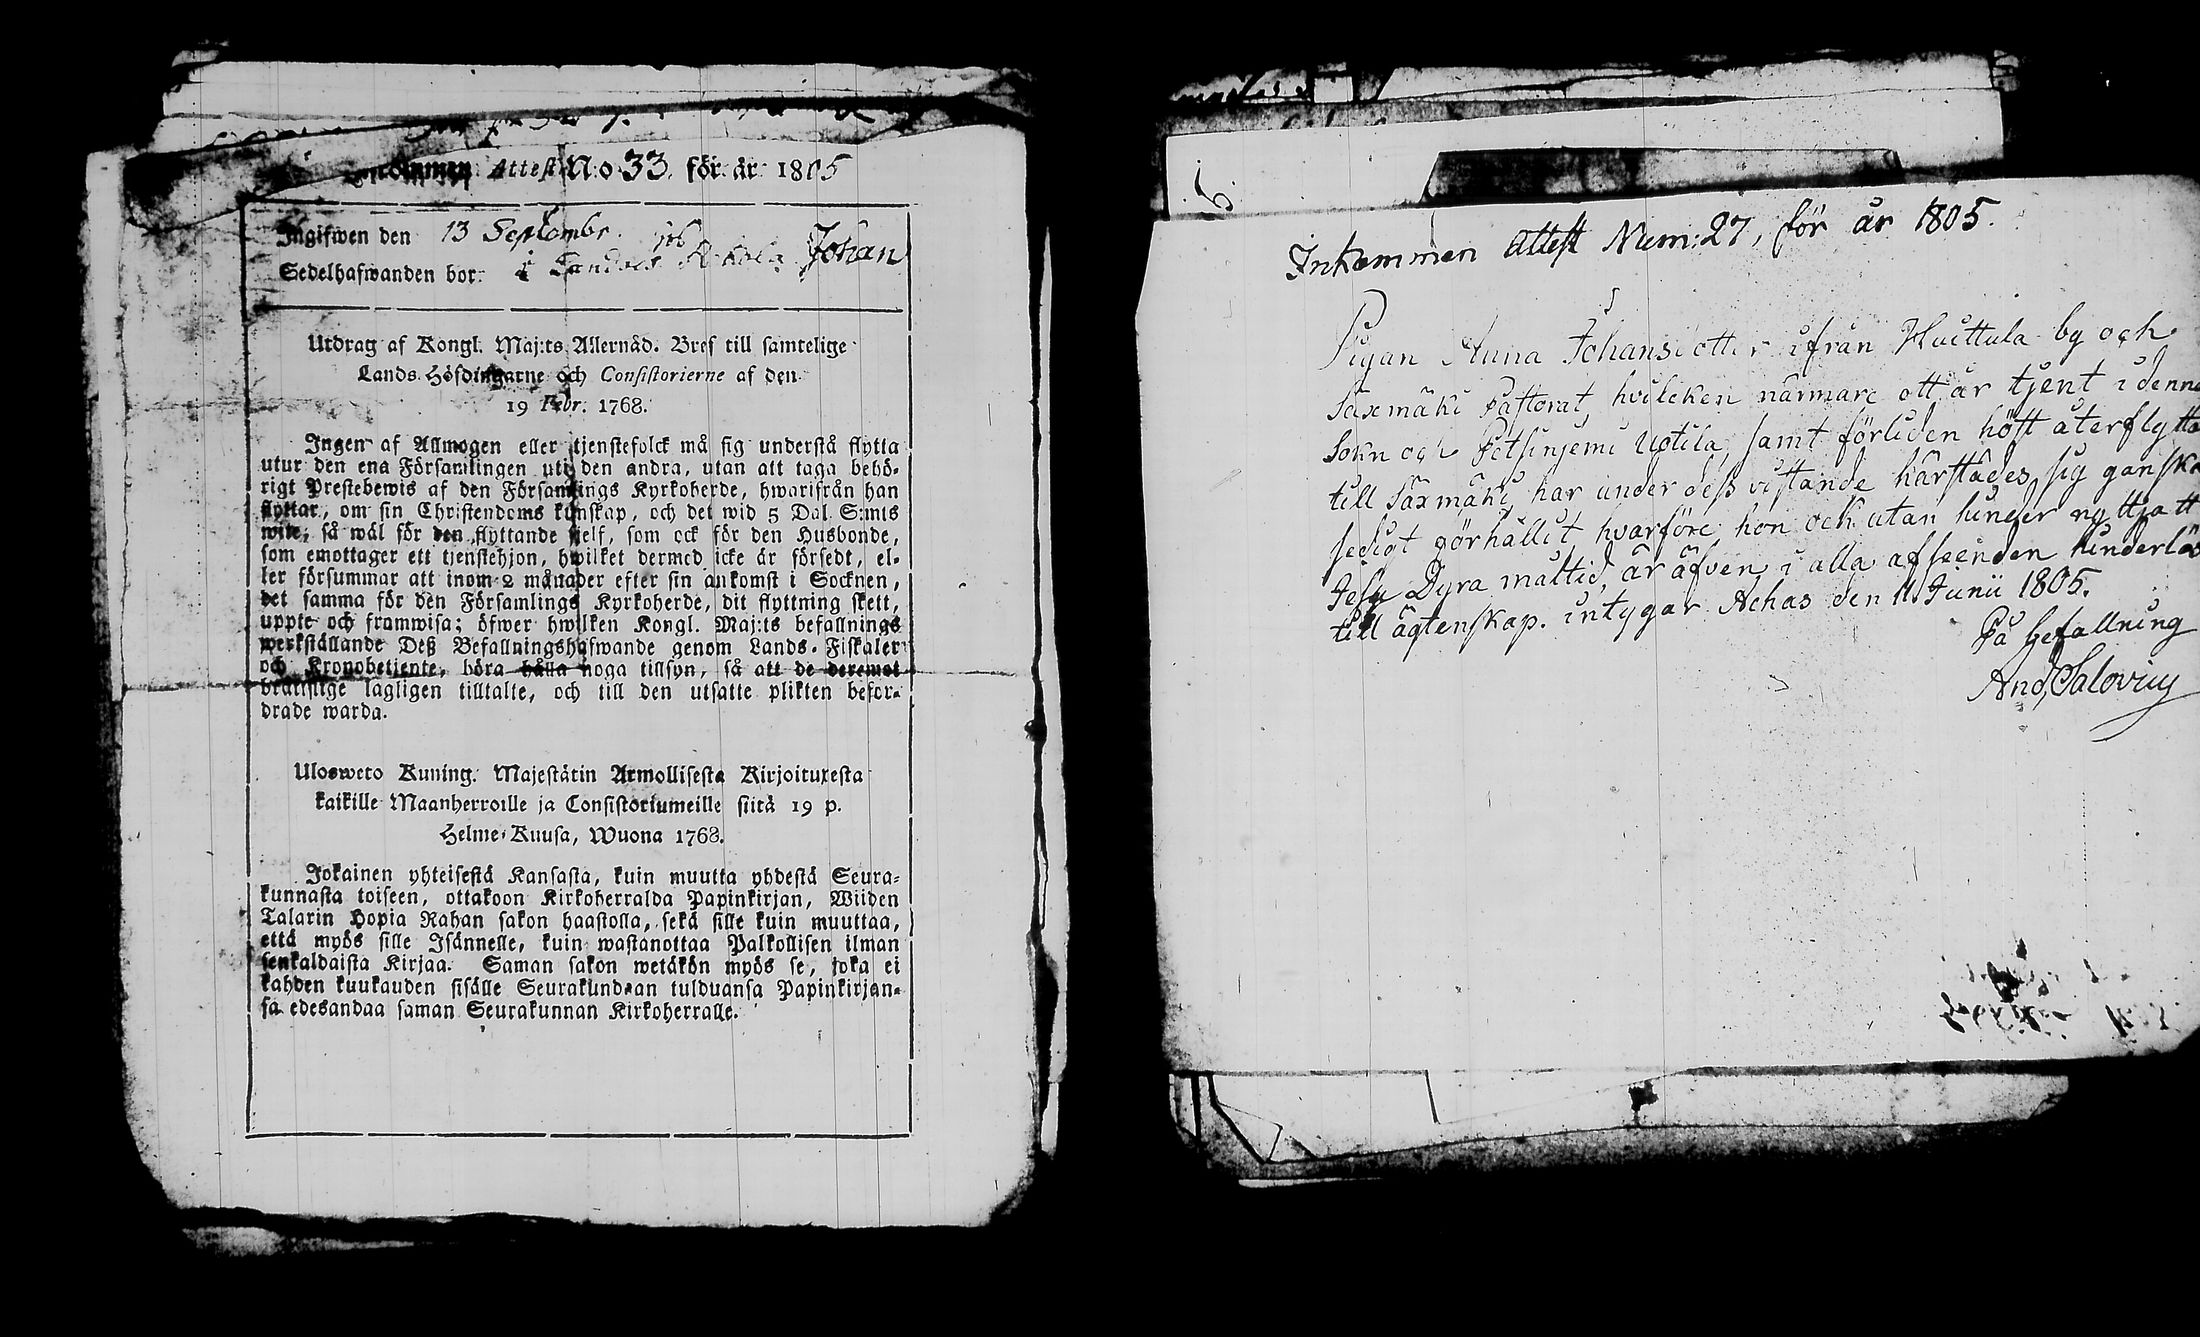 Attest N:o 33. för år 1805
Ingifwen den 13 Septembr.
Sedelhafwanden bor: i Johan
Utdrag af Kongl. Maj:ts Allernåd. Bref till samtelige
Lands Höfdingarne och Consistorierne af den
19 Febr. 1768.
Ingen af Allmogen eller tjenstefolck må sig understå flytta
utur den ena Församlingen uti den andra, utan att taga behö-
rigt Prestebewis af den Församlings Kyrkoherde, hwarifrån han
flyttar, om sin Christendoms kunskap, och det wid 5 Dal. S:mts
wite, så wäl för den flyttande sjelf, som ock för den Husbonde,
som emottager ett tjenstehjon, hwilket dermed icke är försedt, el-
ler försummar att inom 2 månader efter sin ankomst i Socknen,
det samma för den Församlings Kyrkoherde, dit flyttning skett,
uppte och framwisa; öfwer hwilken Kongl. Maj:ts befallnings
werkställande Deß Befallningshafwande genom Lands-Fiskaler
och Kronobetjente, böra hålla noga tillsyn, så att de deremot
bråttslige lagligen tilltalte, och till den utsatte plikten befor-
drade warda.
Ulosweto Kuning. Majestätin Armollisesta Kirjoituxesta
kaikille Maanherroille ja Consistoriumeille siitä 19 p.
Helme-Kuusa, Wuona 1768.
Jokainen yhteisestä Kansasta, kuin muutta yhdestä Seura-
kunnasta toiseen, ottakoon Kirkoherralda Papinkirjan, Wiiden
Talarin Hopia Rahan sakon haastolla, sekä sille kuin muuttaa,
että myös sille Isännelle, kuin wastanottaa Palkollisen ilman
senkaldaista Kirjaa. Saman sakon wetäkön myös se, joka ei
kahden kuukauden sisälle Seurakundaan tulduansa Papinkirjan-
sa edesandaa saman Seurakunnan Kirkoherralle.
Inkommen Attest Num: 27, för år 1805.
Pigan Anna Johansdotter ifrån Huittula by och
Säxmäki Pastorat, hvilcken närmare ett år tjent i denna
Sokn och Petsinjemi Uotila, samt förliden höst återflytta
till Säxmäki, har under deß vistande härstädes sig ganska
sedigt förhållit, hvarföre hon ock utan hinder nyttjatt
Jesu Dyra måltid, är äfven i alla afseenden hinderlös
till ägtenskap. intygar Achas den 11 Junii 1805.
På befallning
And. Salovius